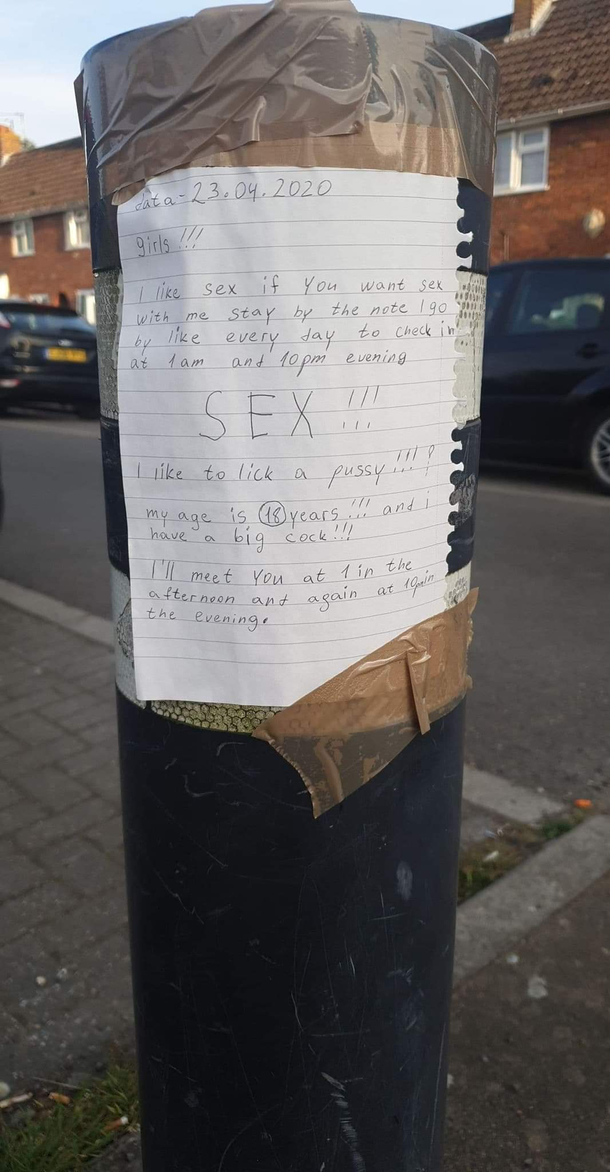 data - 23.04.2020
girls !!!
I like sex if you want sex
with me stay by the note I go
by like every day to check in
at 1am and 10pm evening
SEX !!!
...
I like to lick a pussy!!! ?
my age is 18 years!!! and i
have a big cock!!!
I'll meet you at 1 in the
afternoon and again at 10pm in
the evening.